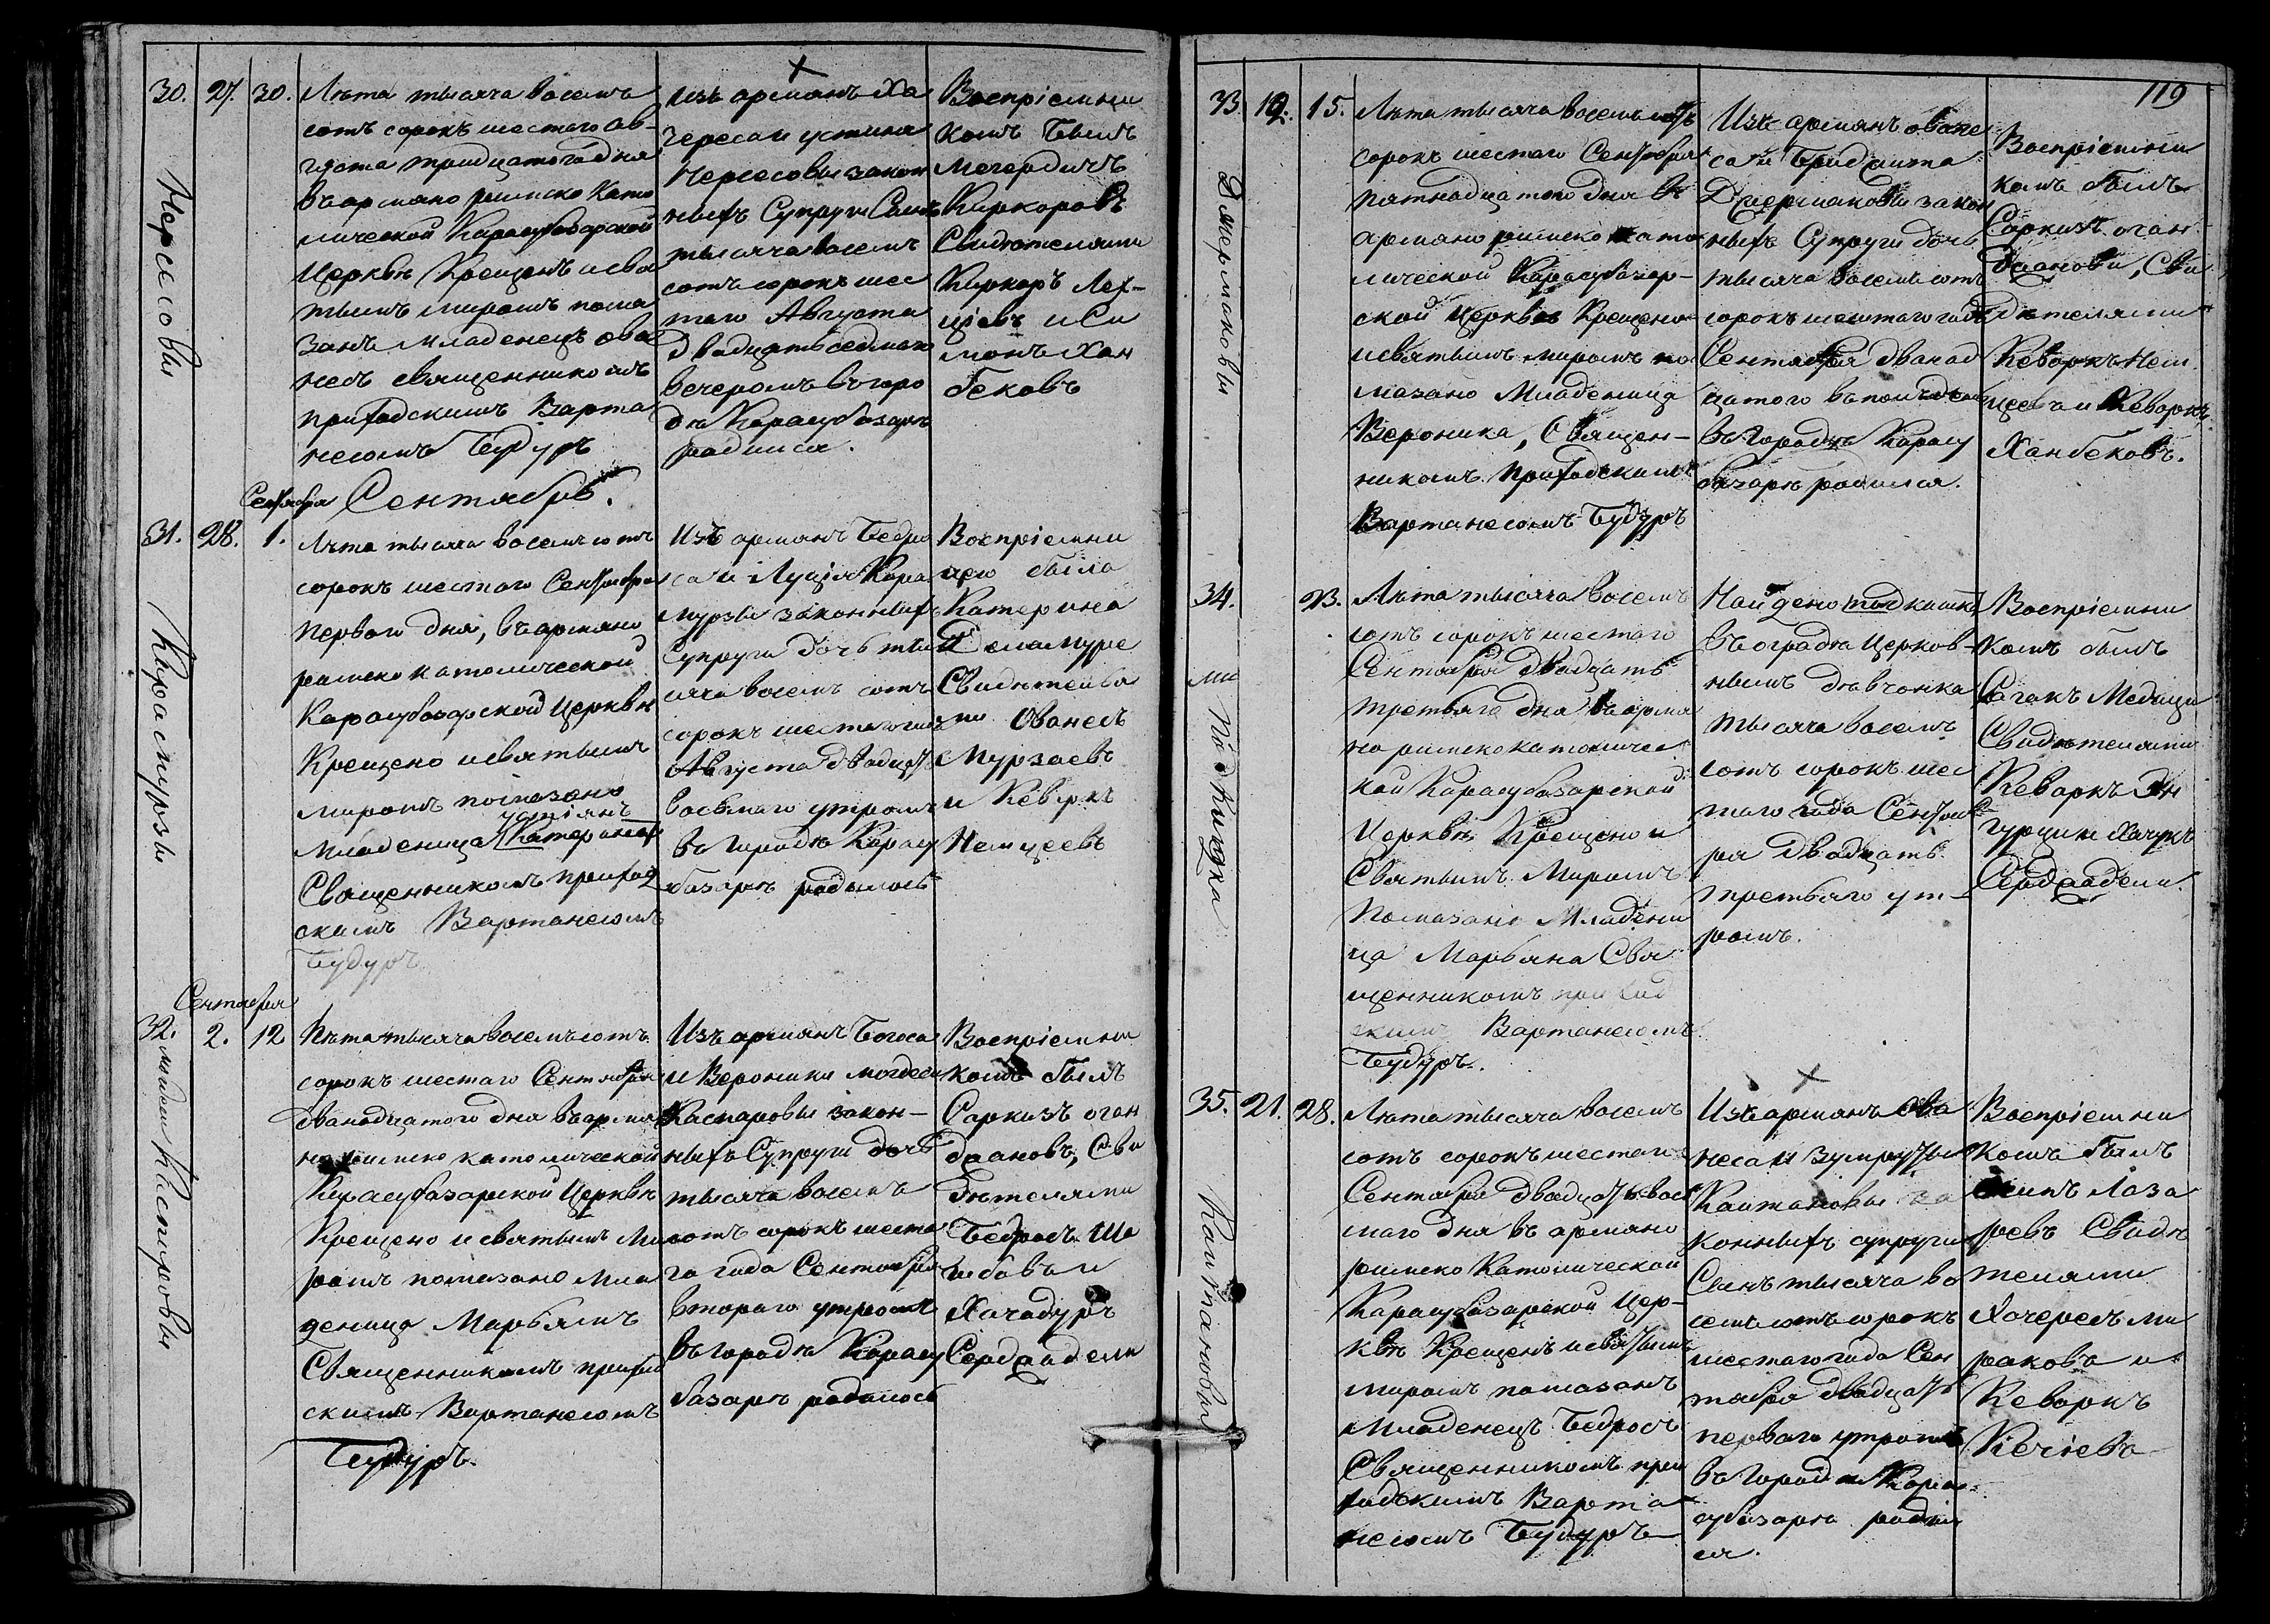 30. 27. 30.
Нерсесовы
Лѣта тысяча восемь
сотъ сорокъ шестаго Ав-
густа тридцатаго дня
въ армяно римско Като
лической Карасубазарской
Церквѣ Крещенъ и свя
тымъ миромъ пома
занъ младенецъ Ова
несъ священникомъ
приходскимъ Варта
несомъ Будуръ
Изъ армянъ Ха
череса и устина
Нерсесовы закон
ныхъ Супруги Сынъ
тысяча восемь
сотъ сорокъ шес
таго Августа
двадцать седмаго
вечеромъ въ горо
дѣ Карасубазарѣ
родился.
Воспріемни
комъ былъ
Мегердичъ
Киркоровъ
Свидѣтелями
Киркоръ Лех-
ціевъ и Си
монъ Хан
бековъ
Сентября Сентябрь.
31. 28. 1.
Карамурзы
Лѣта тысяча восемь сотъ
сорокъ шестаго Сентября
перваго дня, въ армяно
римско католической
Карасубазарской Церквѣ
Крещено и святымъ
миромъ помазано
устіянъ
младеница Катерина
Священникомъ приход
скимъ Вартанесомъ
Будуръ
Изъ армянъ Бедро
са и Луція Кара
мурзы законныхъ
Супруги дочь тыс
яча восемь сотъ
сорокъ шестаго года
Августа двадцать
восьмаго утромъ
въ Городѣ Карасу
базарѣ родилось
Воспріемни
цею была
Катерина
Свидѣтеля
ми Ованесъ
Мурзаевъ
и Кеворкъ
Немцеевъ
Сентября
32. 2. 12
Каспаровы
Лѣта тысяча восемь сотъ
сорокъ шестаго Сентября
двѣнадцатаго дня въ армя
но римско католической
Карасубазарской Церквѣ
Крещено и святымъ Ми
ромъ помазано мла
деница Марьямъ
Священникомъ приход
скимъ Вартанесомъ
Будуръ.
Изъ армянъ Богоса
и Вероники могдеси
Каспаровы закон-
ныхъ Супруги дочь
тысяча восемь
сотъ сорокъ шеста
го года Сентября
втораго утромъ
въ городѣ Карасу
базарѣ родилось
Воспріемни
комъ былъ
Саркизъ оган
джановъ, Сви
дѣтелями
Бедросъ Ша
гибовъ и
Хачадуръ
Сердаръ
119
33. 12. 15.
Джермаковы
Лѣта тысяча восемь сотъ
сорокъ шестаго Сентября
пятнадцатого дня въ
армяно римско като
лической Карасубазар-
ской Церквѣ Крещено
и святымъ миромъ по
мазано Младеница
Вероника, Священ-
никомъ приходскимъ
Вартанесомъ Будуръ
Изъ армянъ Ов
са и
Джермаковы закон
ныхъ Супруги дочь
тысяча восемь сотъ
сорокъ шестаго года
Сентября дванад
цатого въ
въ Городѣ Карасу
базарѣ родился.
Воспріемни
комъ былъ
Саркизъ оган-
джановъ, Сви
дѣтелями
Кеворкъ Нем
цеевъ и Кеворкъ
Ханбековъ.
34. 23.
Подкидка
Лѣта тысяча восемь
сотъ сорокъ шестаго
Сентября двадцать
третьяго дня въ армя
но римско католичес
кой Карасубазарской
Церквѣ Крещено и
Святымъ Миромъ
Помазано Младени
ца Марьяна Свя
щенникомъ приход
скимъ Вартанесомъ
Будуръ.
Найдено подкидка
въ оградѣ Церков-
нымъ дѣвчонка
тысяча восемь
сотъ сорокъ шес
таго года Сентяб
ря двадцать
третьяго ут-
ромъ.
Воспріемни
комъ былъ
Сагакъ
Свидѣтелями
Кеваркъ
и Хачукъ
35. 21. 28.
Каптановы
Лѣта тысяча восемь
сотъ сорокъ шестаго
Сентября двадцать вось
маго дня въ армяно
римско Католической
Карасубазарской Цер-
квѣ Крещенъ и святымъ
миромъ помазанъ
Младенецъ Бедросъ
Священникомъ при
ходскимъ Варта
несомъ Будуръ
Изъ армянъ Ова
неса и
Каптановы за
конныхъ супруги
Сынъ тысяча во
семь сотъ сорокъ
шестаго года Сен
тября двадцать
перваго утромъ
въ Городѣ Кара-
субазарѣ родил
ся.
Воспріемни
комъ былъ
Лаза
ревъ Свидѣ
телями
Хачересъ Ми
раковъ и
Кеворкъ
Кечіевъ